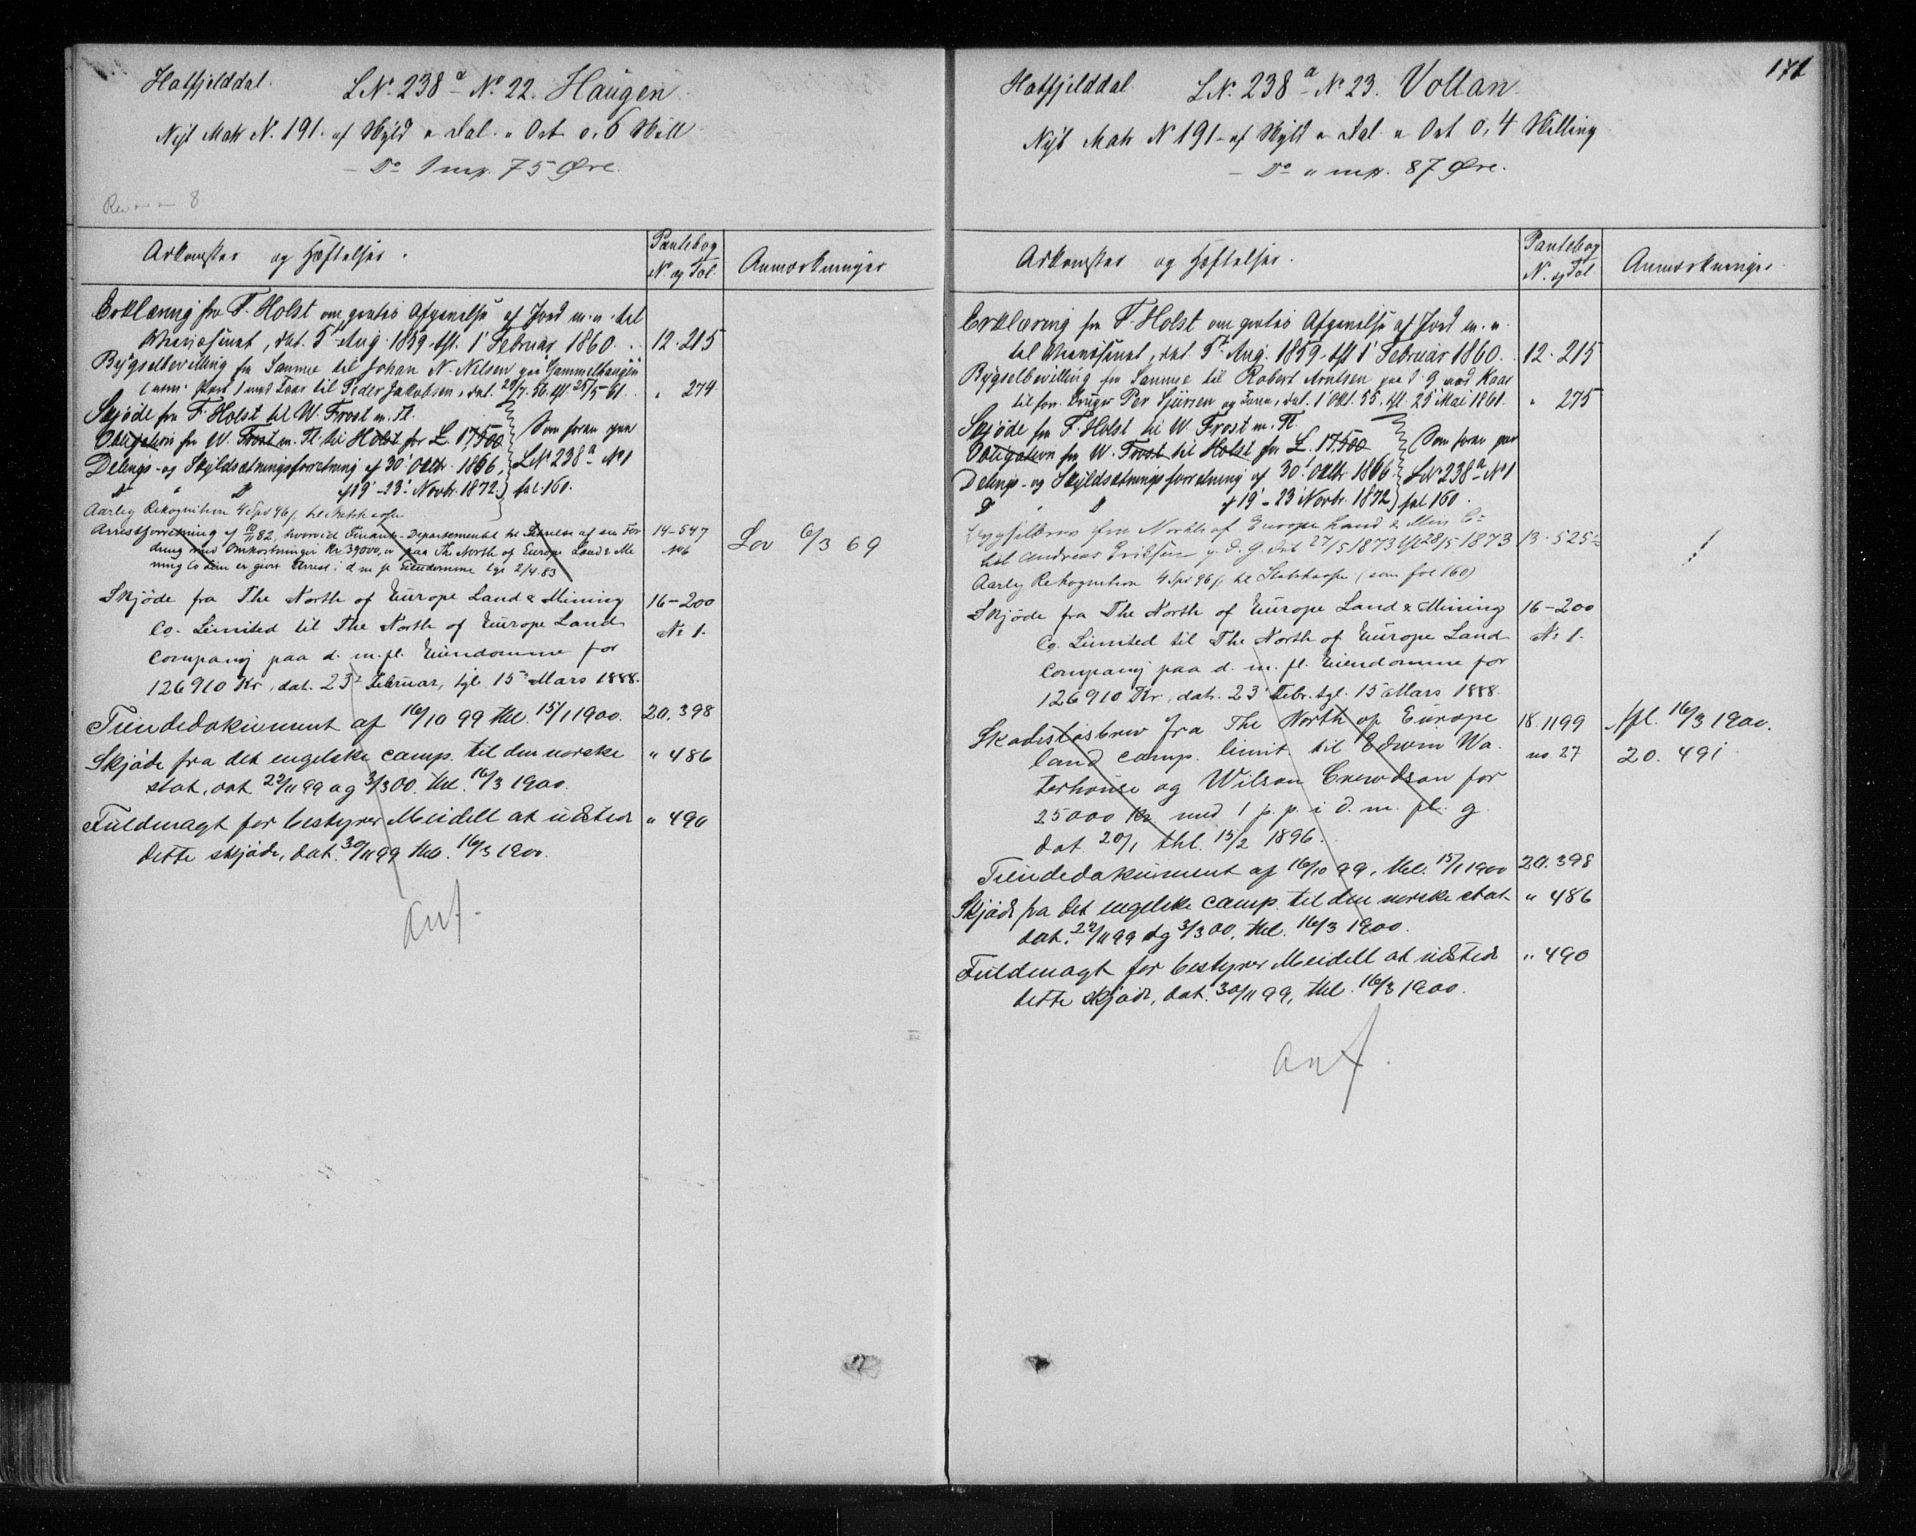 Hatfjelddal. LN. 238 a - No 22. Haugen.
Nyt Matr N. 191. af Skyld " Dal. " Ort 0,6 Skill
- Do 1 mp. 75 Øre.
8
Adkomster og Hæftelser.
Pantebog
N. og Fol.
Anmærkninger
Erklæring fra F. Holst om gratis Afgivelse af Jord m. v. til
dat. 5te Aug. 1859, tgl. 1' Februar 1860. 12-215
Bygselbevilling fra Samme til Johan N. Nielsen paa Gammelhaugen
til Peder Jakobsen, dat. 28/7. 56. tgl 25/5-61. " 274
Skjøde fra F. Holst til W. Frost m. Fl.
Obligation fra W. Frost m. Fl. til Holst for £ 17500
Som foran paa
Delings- og Skyldsætningsforretning af 30' Oktr. 1866, LN 238 a No 1
D " D af 19'-23' Novbr. 1872 fol. 160.
Aarlig Rekognition 4 Spd 96 s. til Statskassen
Arrestforretning af 10/11 82, hvorved Finants-Departementet til Dækkelse af en For- 14-547
dring med Omkostninger Kr. 39000, paa The North of Europe Land & Mi No 6
ning Co Lim er gjort Arrest i d. m. fl. Eiendomme tgl. 2/4. 83
Lov 6/3 69
Skjøde fra The North of Europe Land & Mining 16-200
Co. Limited til The North of Europe Land No 1.
Company paa d. m. fl. Eiendomme for
126910 Kr., dat. 23' Februar, tgl. 15' Mars 1888.
Tiendedokument af 16/10 99 thl. 15/1 1900. 20.398
Skjøde fra det engelske comp. til den norske " 486
stat, dat. 22/11 99 og 3/3 00. thl. 16/3 1900.
Fuldmagt for bestyrer Meidell at udstede " 490
dette skjøde, dat. 30/11 99 thl. 16/3 1900.
Anf.
171
Hatfjelddal. LN. 238 a - No 23. Vollan.
Nyt Matr N 191 - af Skyld " Dal " Ort 0,4 Skilling
- Do " mp. 87 Øre.
Adkomster og Hæftelser.
Pantebog
N. og Fol
Anmærkninger
Erklæring fra F. Holst om gratis Afgivelse af Jord m. v.
til dat. 5te Aug. 1859, tgl 1' Februar 1860. 12-215
Bygselbevilling fra Samme til Robert Arntsen paa d. G. med Kaar
til for. Bruger Per Sjursen og Kone, dat. 1' Okt. 55, tgl. 25 Mai 1861. " 275
Skjøde fra F. Holst til W. Frost m. Fl.
Obligation fra W. Frost til Holst for £. 17500 Som foran paa
Delings- og Skyldsætningsforretning af 30' Oktr 1866. LN 238 a No 1
D " D af 19'-23' Novbr. 1872 fol 160.
Bygselbrev fra North of Europe Land & Min Co
til Andreas Eriksen p. d. G. dat 27/5 1873 tgl 28/5 1873 13-525 !
Aarlig Rekognition 4 Spd 96 s. til Statskassen (som fol 160)
Skjøde fra The North of Europe Land & Mining 16-200
Co. Limited til The North of Europe Land No 1.
Company paa d. m. fl. Eiendomme for
126910 Kr., dat. 23' Febr. tgl. 15' Mars 1888.
Skadesløsbrev fra The North of Europe 18.1199 Afl. 16/3 1900.
land comp. limit. til Edwin Wa- no 27 20. 491
terhouse og Wilson Crewdson for
25000 Kr. med 1 p. p. i d. m. fl. g.
dat. 20/1 thl. 15/2 1896.
Tiendedokument af 16/10 99, thl. 15/1 1900 20.398
Skjøde fra det engelske comp. til den norske stat " 486
dat. 22/11 99 og 3/3 00, thl. 16/3 1900.
Fuldmagt for bestyrer Meidell at udstede " 490
dette skjøde, dat. 30/11 99, thl. 16/3 1900.
Anf.